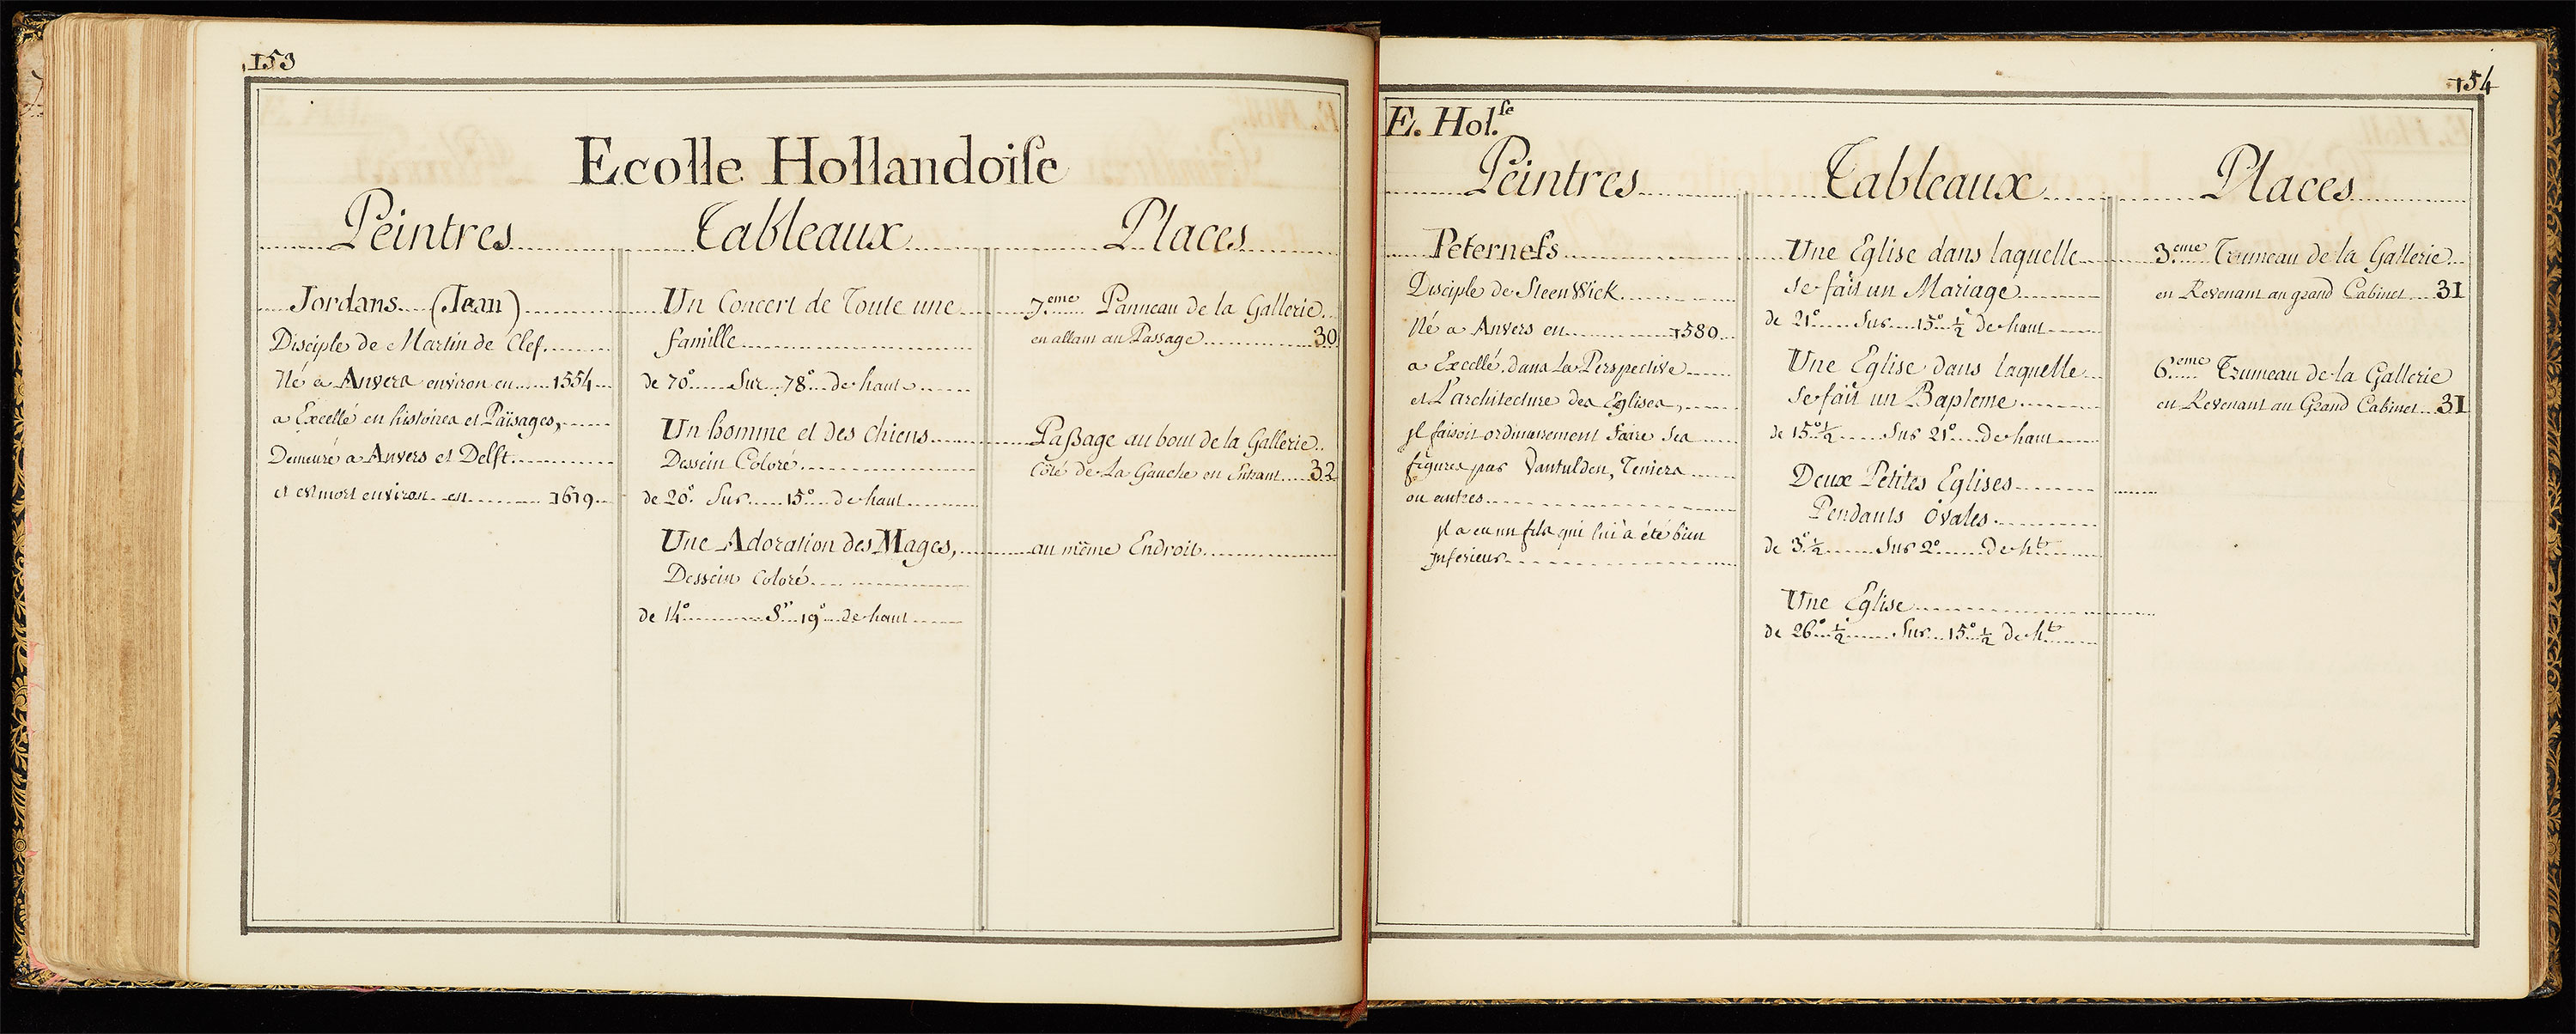 153
Ecolle Hollandoise
Peintres
Tableaux
Places
Jordans (Jean)
Disciple de Martin de Clef.
Né a Anvers environ en 1554
a Excellé en histoires et Païsages,
Demeuré a Anvers et Delft.
et est mort environ en 1619
Un Concert de Toute une
famille
de 70° Sur 78° de haut
Un homme et des chiens
Dessein Coloré
de 20° Sur 15° de haut
Une Adoration des Mages,
Dessein Coloré
de 14° Sr 19° de haut
7.eme Panneau de la Gallerie
en allant au Passage 30
Passage au bout de la Gallerie
Côté de La Gauche en Entrant 32
au même Endroit
154
E. Hol.se
Peintres
Tableaux
Places
Peternefs
Disciple de SteenWick
Né a Anvers en 1580
a Excellé dans La Perspective
et L'architecture des Eglises,
il faisoit ordinairement Faire Ses
figures par Vantulden, Teniers
ou autres
il a eu un fils qui lui a été bien
inferieur
Une Eglise dans laquelle
se fait un Mariage
de 21° Sur 15° 1/2 de haut
Une Eglise dans laquelle
se fait un Bapteme
de 15° 1/2 Sur 21° de haut
Deux Petites Eglises
Pendants ôvales
de 3° 1/2 Sur 2° de ht
Une Eglise
de 26° 1/2 Sur 15° 1/2 de ht
3.eme Trumeau de la Gallerie
en Revenant au grand Cabinet 31
6.eme Trumeau de la Gallerie
en Revenant au Grand Cabinet 31